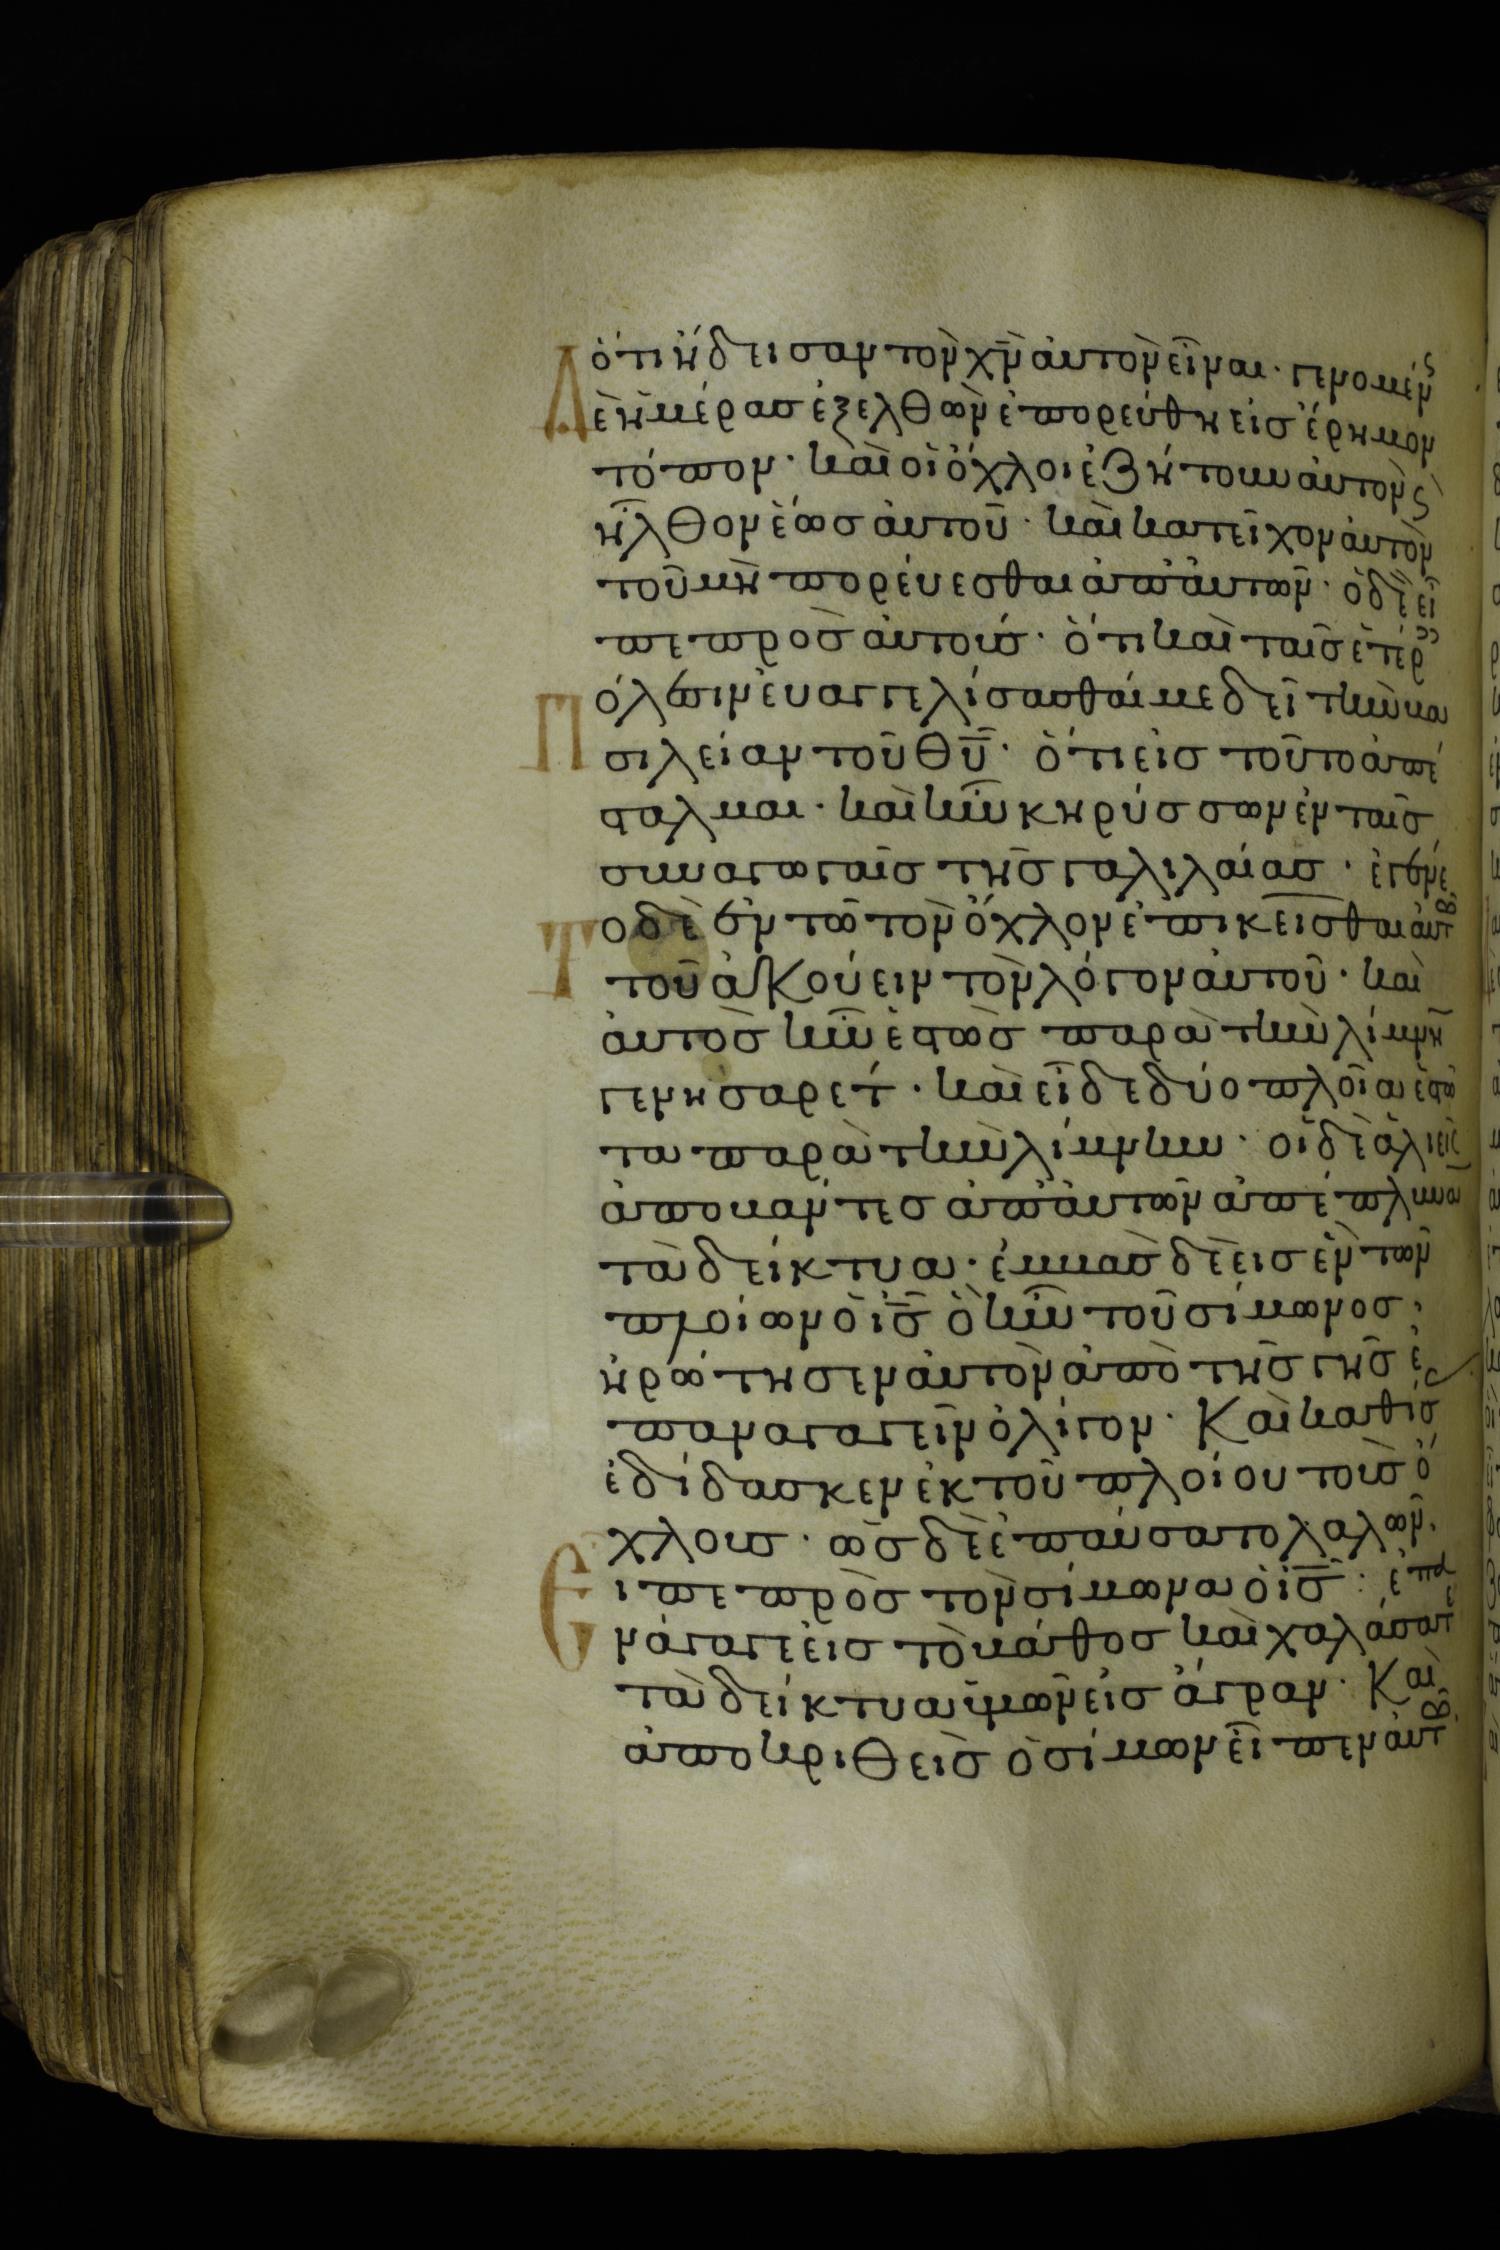 ὅτι ᾔδεισαν τὸν χν αὐτὸν εἶναι· γενομένς
Δὲ ἡμέρας ἐξελθὼν ἐπορεύθη εἰς ἔρημον
τόπον· καὶ οἱ ὄχλοι ἐζήτουν αὐτὸν ϛ
ἦλθον ἕως αὐτοῦ· καὶ κατεῖχον αὐτὸν
τοῦ μὴ πορεύεσθαι ἀπ' αὐτῶν· ὁ δὲ εἶ
πε πρὸς αὐτούς· ὅτι καὶ ταῖς ἑτέρ
Πόλεσιν εὐαγγελίσασθαί με δεῖ τὴν βα
σιλείαν τοῦ θυ· ὅτι εἰς τοῦτο ἀπέ
σταλμαι· καὶ ἦν κηρύσσων ἐν ταῖς
συναγωγαῖς τῆς γαλιλαίας· ἐγένε
Το δὲ ἐν τῷ τὸν ὄχλον ἐπικεῖσθαι αὐτ
τοῦ ἀκούειν τὸν λόγον αὐτοῦ· καὶ
αὐτὸς ἦν ἑστὼς παρὰ τὴν λίμνη
γενησαρέτ· καὶ εἶδε δύο πλοῖα ἑστῶ
τα παρὰ τὴν λίμνην· οἱ δὲ ἁλιεῖς
ἀποβάντες ἀπ' αὐτῶν ἀπέπλυνα
τὰ δίκτυα· ἐμβὰς δὲ εἰς ἓν τῶν
πλοίων ὁ ις ὃ ἦν τοῦ σίμωνος·
ἠρώτησεν αὐτὸν ἀπὸ τῆς γῆς ἐ
παναγαγεῖν ὀλίγον· Καὶ καθίσ
ἐδίδασκεν ἐκ τοῦ πλοίου τοὺς ὄ
χλους· ὡς δὲ ἐπαύσατο λαλῶν·
Εἶπε πρὸς τὸν σίμωνα ὁ ις: ἐπα
νάγαγε εἰς τὸ βάθος καὶ χαλάσατ
τὰ δείκτυα ὑμῶν εἰς ἄγραν· Καὶ
ἀποκριθεὶς ὁ σίμων εἶπεν αὐτ